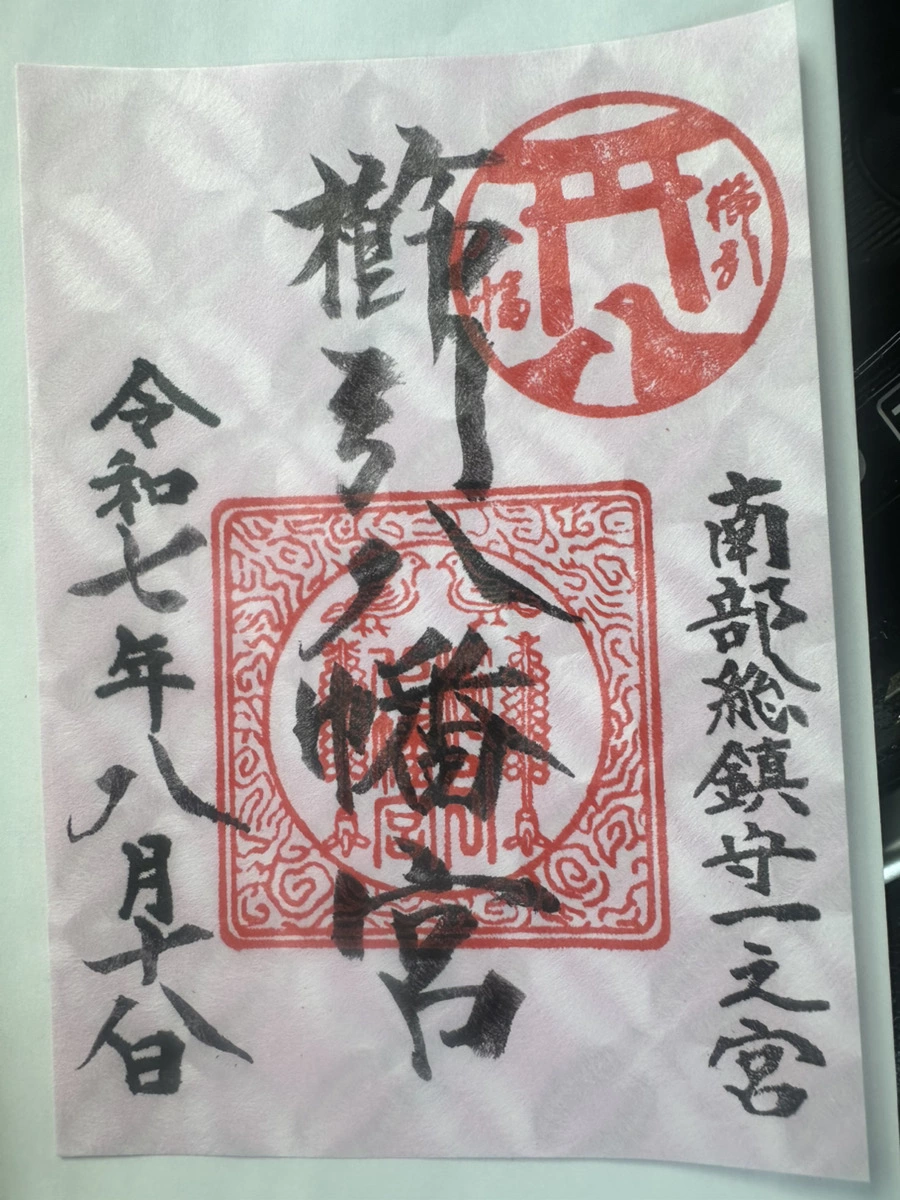 南部総鎮守一之宮
櫛引八幡宮
令和七年八月十八日
櫛引
八幡